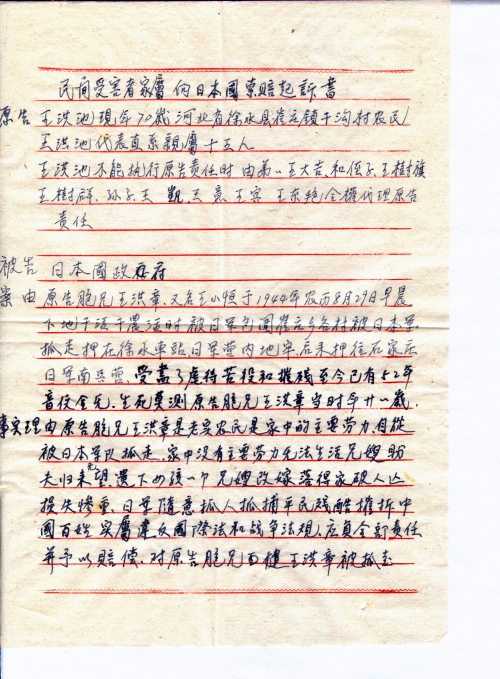 民间受害者家屬向日本國索賠起訴書
原告 王洪池現年70歲河北省徐水县崔庄镇干沟村农民
王洪池代表直系親屬十五人
王洪池不能执行原告責任时由弟王大吉和侄子王樹旗
王樹群、孙子王凱王亮、王容王东艳全權代理原告
责任
被告 日本國政府
案由 原告胞兄王洪章又名王小恒于1944年农历8月29日早晨
下地干活干農活时被日军包圍崔庄乡各村被日本军
抓走押在徐水車站日军营内地牢后未押往石家庄
日军南兵营、受盡了虐待苦役和摧残至今已有52年
音仪全无生死莫測原告胞兄王洪章当时年廿一歲
事实理由原告胞兄王洪章是老实农民是家中的主要劳力自從
被日本军队抓走家中没有主要劳力无法生活兄嫂盼
夫归来无望遗下女孩一个兄嫂改嫁落得家破人亡
損失惨重日军隨意抓人抓捕平民残酷摧折中
國百姓实屬違反國際法和战争法規应负全部责任
并予以賠偿、对原告胞兄王洪章被抓至